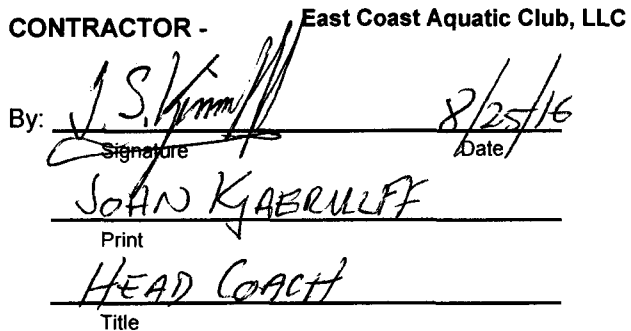 CONTRACTOR - East Coast Aquatic Club, LLC
By: 8/25/16
Signature Date
JOHN KJAERULFF
Print
HEAD COACH
Title